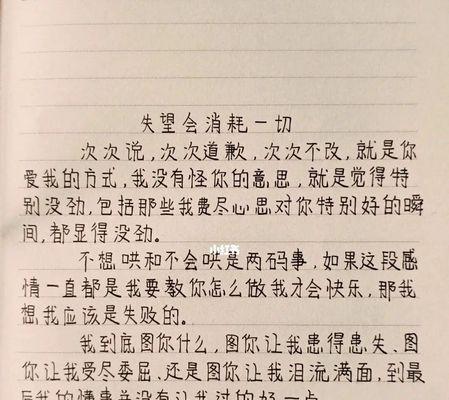 失望会消耗一切
次次说,次次道歉,次次不改,就是你
爱我的方式,我没有怪你的意思,就是觉得特
别没劲,包括那些我费尽心思对你特别好的瞬
间,都显得没劲。
小红书
不想哄和不会哄是两码事,如果这段感
情一直都是我要教你怎么做我才会快乐,那我
想我应该是失败的。
我到底图你什么,图你让我患得患失、图
你让我受尽委屈、还是图你让我泪流满面,到最
后我的情事并没有让我过的好一点